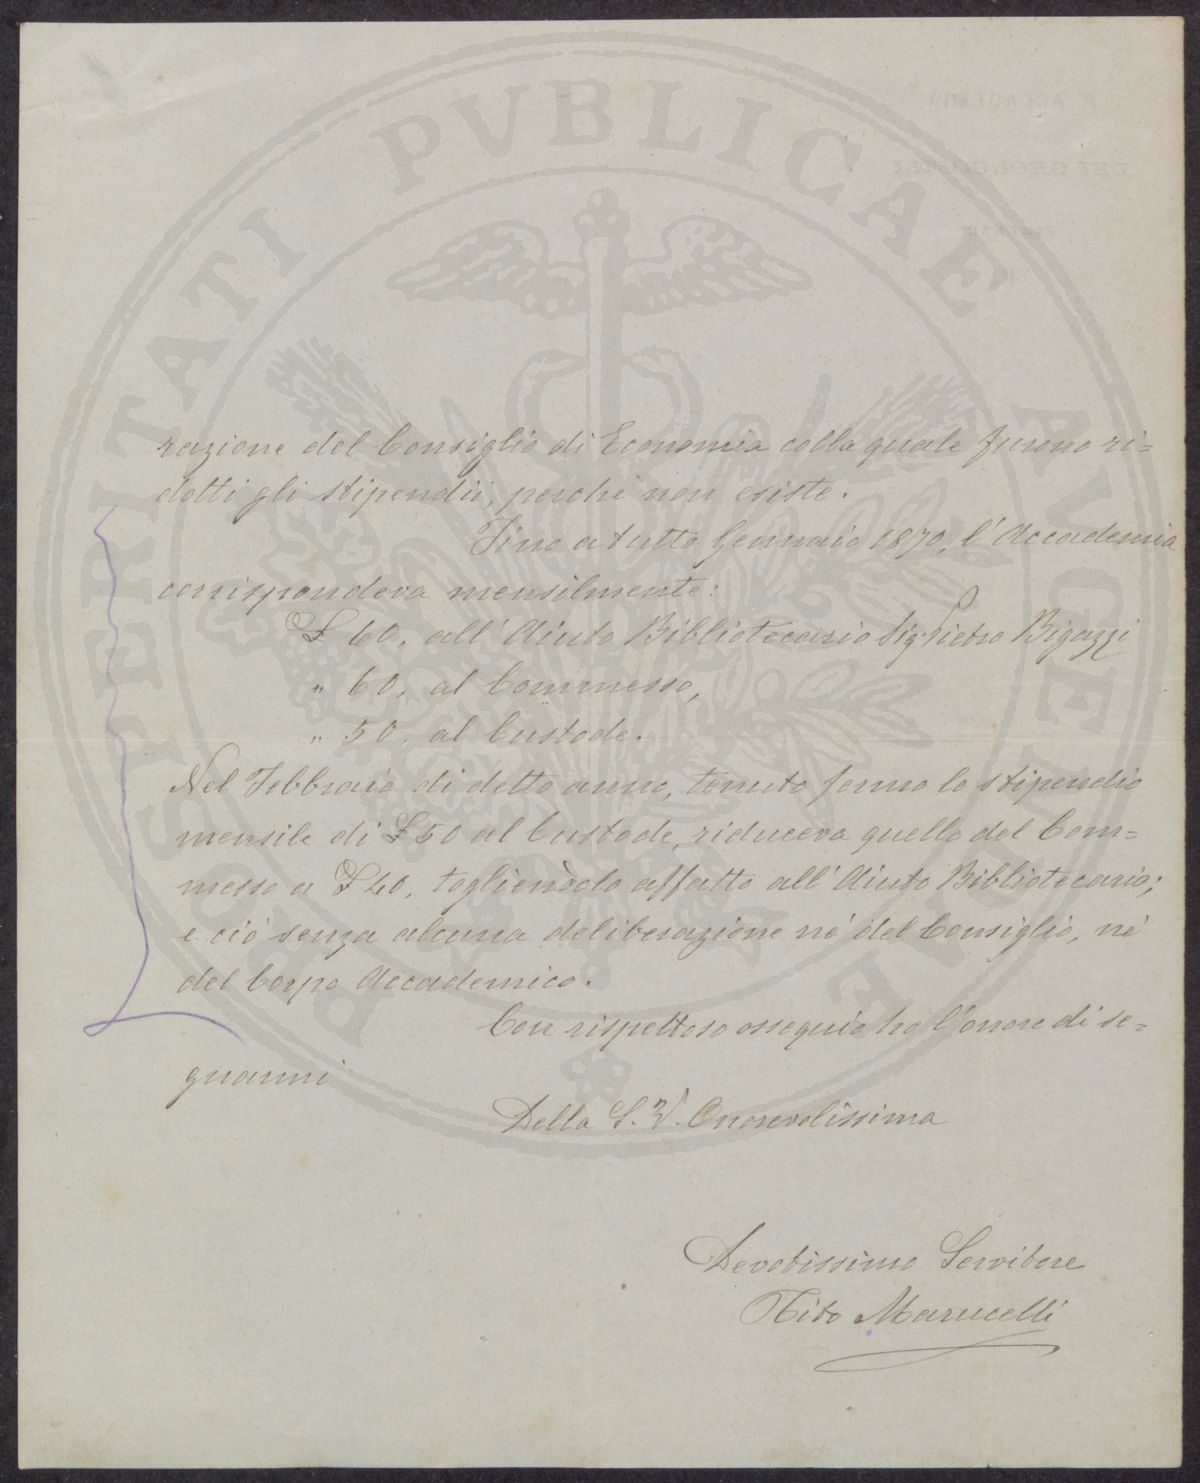 PROSPERITATI PVBLICAE AVGENDAE
R. ACCADEMIA
DEI GEORGOFILI
razione del Consiglio di Economia colla quale furono ri=
dotti gli stipendii, perchè non esiste.
Fino a tutto Gennaio 1870, l'Accademia
corrispondeva mensilmente:
£ 60, all'Aiuto Bibliotecario Sig. Pietro Bigazzi
" 60, al Commesso,
" 50, al Custode.
Nel Febbraio di detto anno, tenuto fermo lo stipendio
mensile di £ 50 al Custode, riduceva quello del Com=
messo a £ 40, togliendolo affatto all'Aiuto Bibliotecario;
e ciò senza alcuna deliberazione nè del Consiglio, nè
del Corpo Accademico.
Con rispettoso ossequio ho l'onore di se=
gnarmi
Della S. V. Onorevolissima
Devotissimo Servitore
Tito Marucelli